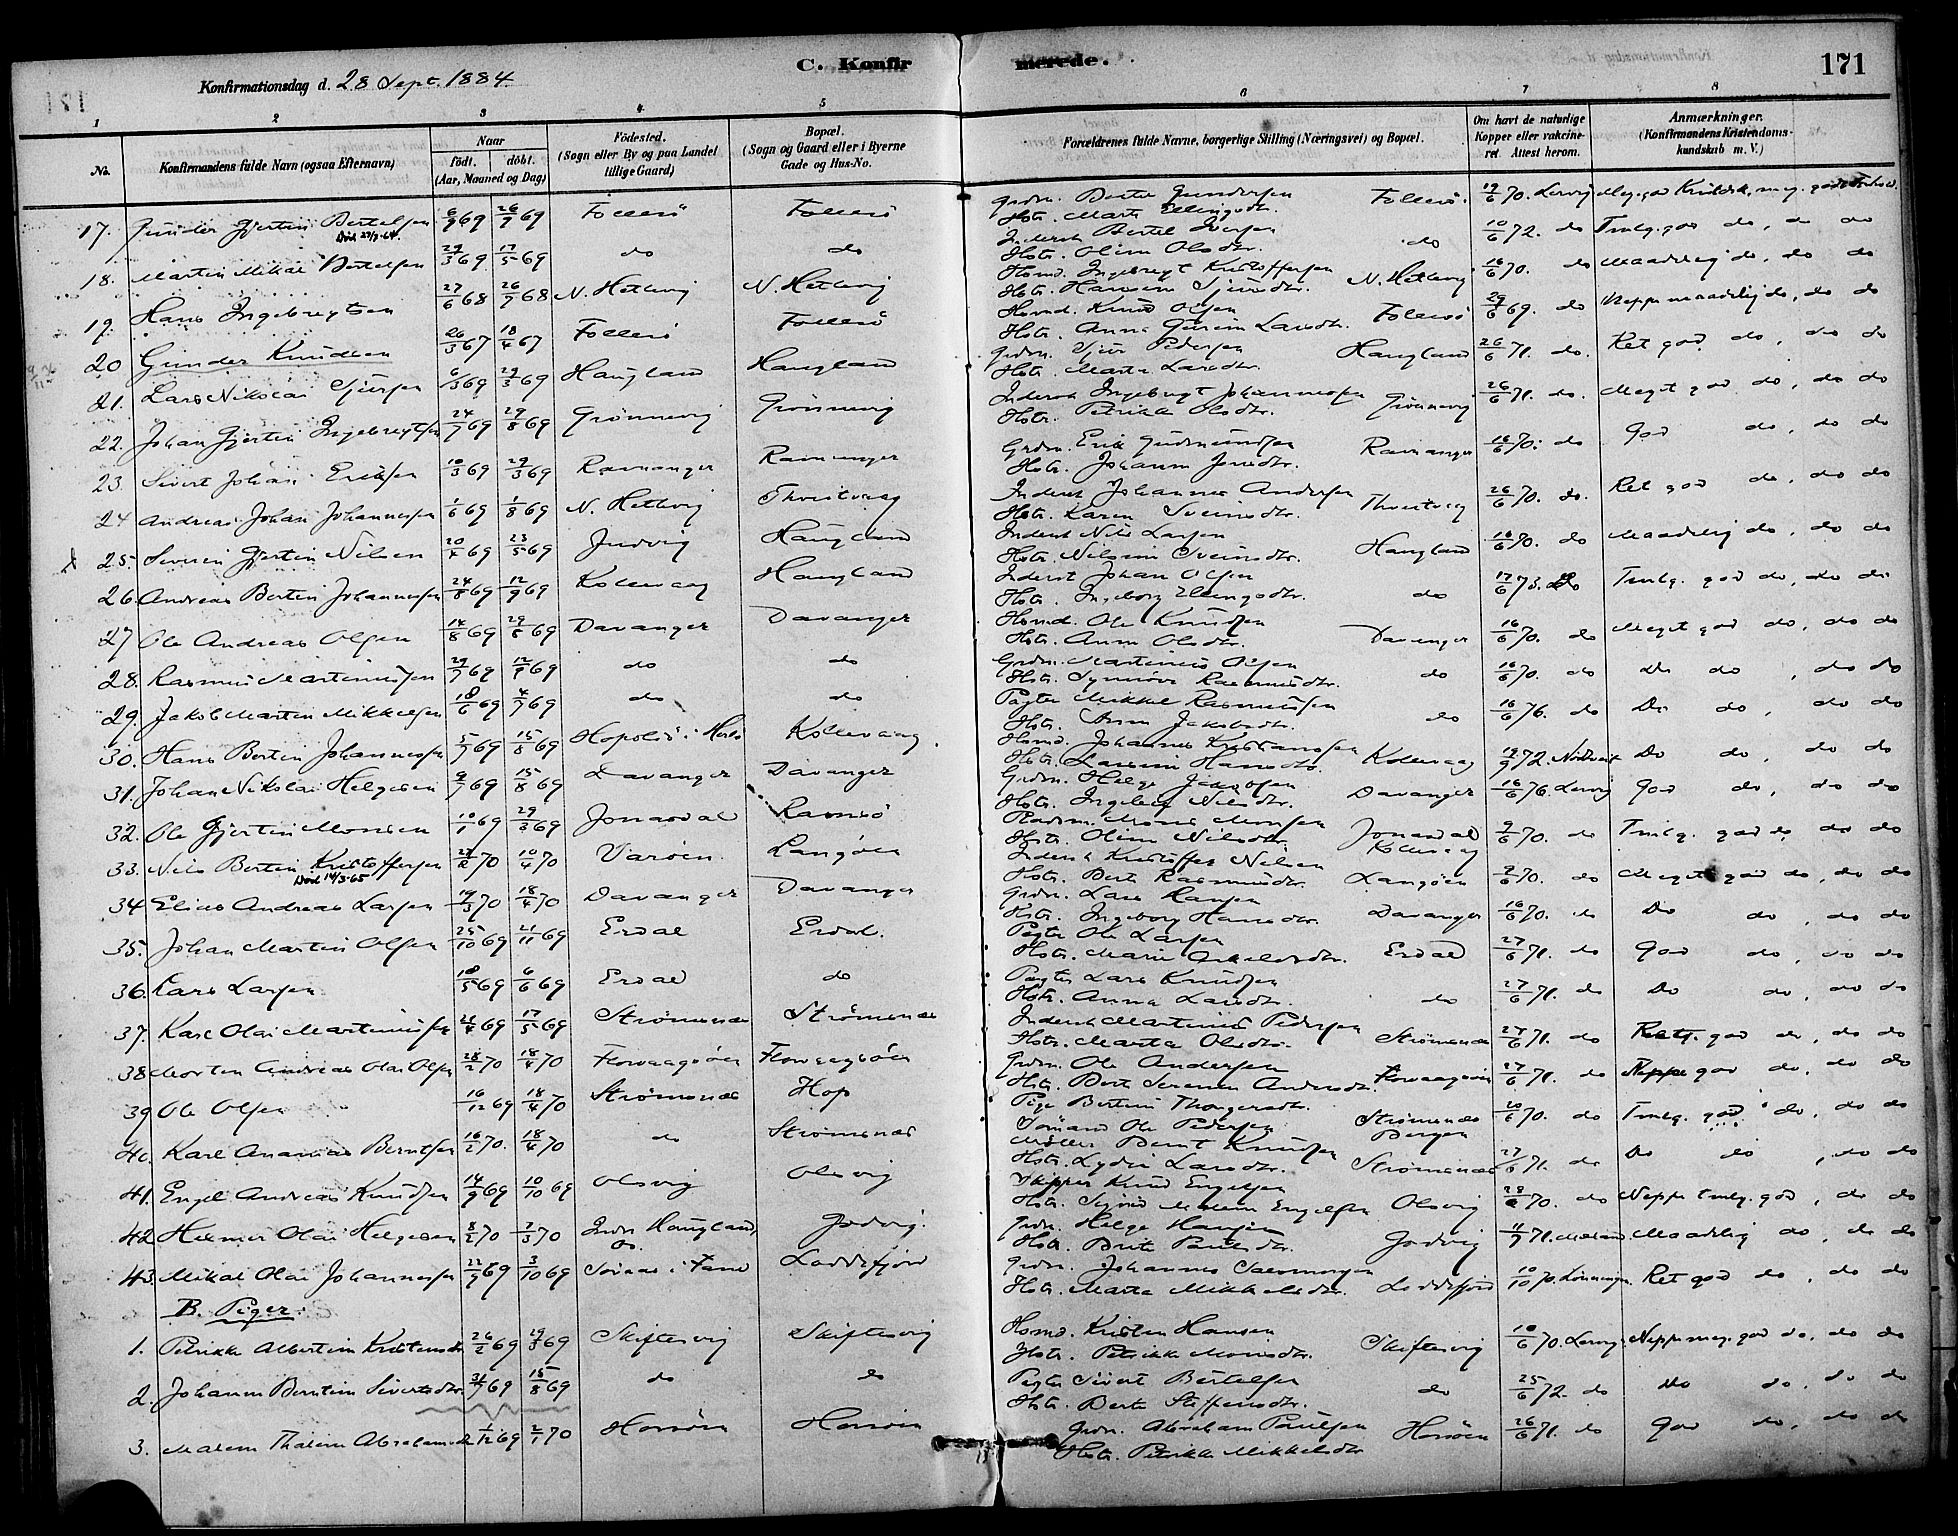 C. Konfirmerede.
171
Konfirmationsdag d. 28 Sept. 1884.
1 2 3 4 5 6 7 8
No. Konfirmandens fulde Navn (ogsaa Efternavn) Naar født. døbt. (Aar, Maaned og Dag) Födested. (Sogn eller By og paa Landet tillige Gaard) Bopæl. (Sogn og Gaard eller i Byerne Gade og Hus-No. Forældrenes fulde Navne, borgerlige Stilling (Næringsvei) og Bopæl. Om havt de naturlige Kopper eller vakcineret. Attest herom. Anmærkninger. (Konfirmandens Kristendomskundskab m. V.)
17. Gunder Gjertin Bertelsen 6/9 69 26/9 69 Follesö Follesö Grdm. Gundersen Follesö. 19/6 70. Lervig
Hstr. Marta Ellingsdtr.
18. Martin Mikal Bertelsen 29/3 69 17/5 69 do do Inderst Bertel Iversen do 10/6 72. do Tmlg. god do, do do
Hstr. Olina Olsdtr.
19. Hans Ingebregtsen 27/6 68 26/7 68 N. Hetlevig N. Hetlevig Hsmd. Ingebregt Kristoffersen N. Hetlevig 16/6 70. do Maadelig do, do do
Hstr. Sjursdtr.
20 Gunder Knudsen 26/3 67 18/4 67 Follesö Follesö Hsmd. Knud Olsen Follesö 29/6 69. do Neppe maadelig do, do do
Hstr. Anna Larsdtr.
21. Lars Nikolai Sjursen 6/3 69 29/3 69 Haugland Haugland Grdm. Sjur Pedersen Haugland 26/6 71. do. Ret god do, do do
Hstr. Marta Larsdtr.
22. Johan Gjertin Ingebregtsen 24/7 69 29/8 69 Grönnevig Grönnevig Inderst Ingebregt Johannessen Grönnevig 26/6 71. do. Meget god do, do do
Hstr. Petrikke Olsdtr.
23. Sivert Johan Eriksen 10/3 69 29/3 69 Ravnanger Ravnanger Grdm. Erik Gudmundsen Ravnanger 16/6 70. do God do, do do
Hstr. Johanna Jonsdtr.
24 Andreas Johan Johannessen 1/6 69 1/8 69 N. Hetlevig Thveitvaag Inderst Johannes Andersen Thveitvaag 26/6 70. do. Ret god do, do do
Hstr. Karen Sveinsdtr.
25. Severin Gjertin Nilsen 20/4 69 23/5 69 Juvig Haugland Inderst Nils Larsen Haugland 16/6 70. do Maadelig do, do do
Hstr. Nilsine Sveinsdtr.
26. Andreas Bertin Johannessen 24/8 69 12/9 69 Kollevaag Haugland Inderst Johan Olsen do 17/6 73. do Tmlg. god do, do do
Hstr. Ingeborg Ellingsdtr.
27 Ole Andreas Olsen 14/8 69 29/8 69 Davanger Davanger Hsmd. Ole Knudsen Davanger 16/6 70. do Meget god do, do do
Hstr. Anna Olsdtr.
28. Rasmus Martinussen 29/7 69 12/9 69 do do Grdm. Martinus Olsen do 16/6 70. do Do do, do do
Hstr. Synnöve Rasmusdtr.
29. Jakob Martin Mikkelsen 18/6 69 4/7 69 do do Pagter Mikkel Rasmussen do 16/6 76. do Do do, do do
Hstr. Anna Jakobsdtr.
30. Hans Bertin Johannessen 5/7 69 15/8 69 Kollevaag. Hsmd. Johannes Kristiansen Kollevaag 19/9 72. Do do, do do
Hstr. Hansdtr.
31. Johan Nikolai Helgesen 9/7 69 15/8 69 Davanger Davanger Grdm. Helge Jakobsen Davanger 16/6 76. Lervig God do, do do
Hstr. Ingeborg Nilsdtr.
32. Ole Gjertin Monsen 10/1 69 29/3 69 Jonasdal Ramsö Mons Monsen Jonasdal 9/6 70. do Tmlg. god do, do do
Hstr. Olina Nilsdtr. Kollevaag
33. Nils Bertin Kristoffersen 22/2 70 10/4 70 Varöen. Langöen Inderst Kristoffer Nilsen Langöen 9/6 70. do Meget god do, do do
Hstr. Berte Rasmusdtr.
34 Elias Andreas Larsen 19/3 70 18/4 70 Davanger Davanger Grdm. Lars Hansen Davanger 16/6 70. do Do do, do do
Hstr. Ingeborg Hansdtr.
35. Johan Martin Olsen 25/10 69 21/11 69 Erdal Erdal. Pagter Ole Larsen Erdal 27/6 71. do God do, do do
Hstr. Marie
36. Lars Larsen 18/5 69 6/6 69 Erdal do Pagter Lars Knudsen do 27/6 71. do Do do, do do
Hstr. Anna Larsdtr.
37. Karl Olai Martinussen 21/4 69 17/5 69 Strömsnæs Strömsnæs Inderst Martinus Pedersen Strömsnæs 27/6 71. do Ret god do, do do
Hstr. Marta Olsdtr.
38 Morten Andreas Olai Olsen 28/2 70 18/4 70 Florvaagsöen Florvaagsöen Grdm. Ole Andersen Florvaagsöen 27/6 71. do Neppe god do, do do
Hstr. Berte Serene Andersdtr.
39 Ole Olsen 16/12 69 18/4 70 Strömsnæs Hop Pige Bertine Thorgersdtr. Strömsnæs 20/6 70. do Tmlg. god do, do do
Sömand Ole Pedersen Bergen
40. Karl Ananias Berntsen 16/2 70. 18/4 70 do Strömsnæs Möller Bernt Knudsen Strömsnæs 27/6 71. do Do do, do do
Hstr. Lydia Larsdtr.
41. Engel Andreas Knudsen 14/9 69 10/10 69 Olsvig Olsvig Skipper Knud Engelsen Olsvig 28/6 70. do Neppe tmlg. god, do do
Hstr. Malene Engelsen
42 Helmer Olai Helgesen 8/2 70 7/3 70 Indre Haugland, Jadvig. Grdm. Helge Hansen Jadvig 11/9 71. Maadelig do, do do
Hstr. Brite Paulsdtr.
43. Mikal Olai Johannessen 22/9 69 3/10 69 i Fane Loddefjord Grdm. Johannes Salomonsen Loddefjord 10/10 70. Ret god do, do do
Hstr. Marta Mikkelsdtr.
B. Piger.
1. Petrikke Albertine Kristensdtr. 26/2 69 29/3 69 Skiftesvig Skiftesvig Hsmd. Kristen Hansen Skiftesvig 10/6 70. Lervig Neppe meg. god do, do do
Hstr. Petrikke Monsdtr.
2. Johanna Berntine Sivertsdtr. 31/7 69 15/8 69 do do Pagter Sivert Bertelsen do 25/6 72. do Do do, do do
Hstr. Berte Steffensdtr.
3. Malene Thaline Abrahamsdtr. 1/12 69 2/1 70 Horsöen Horsöen Grdm. Abraham Paulsen Horsöen 26/6 71. do God do, do do
Hstr. Petrikke Mikkelsdtr